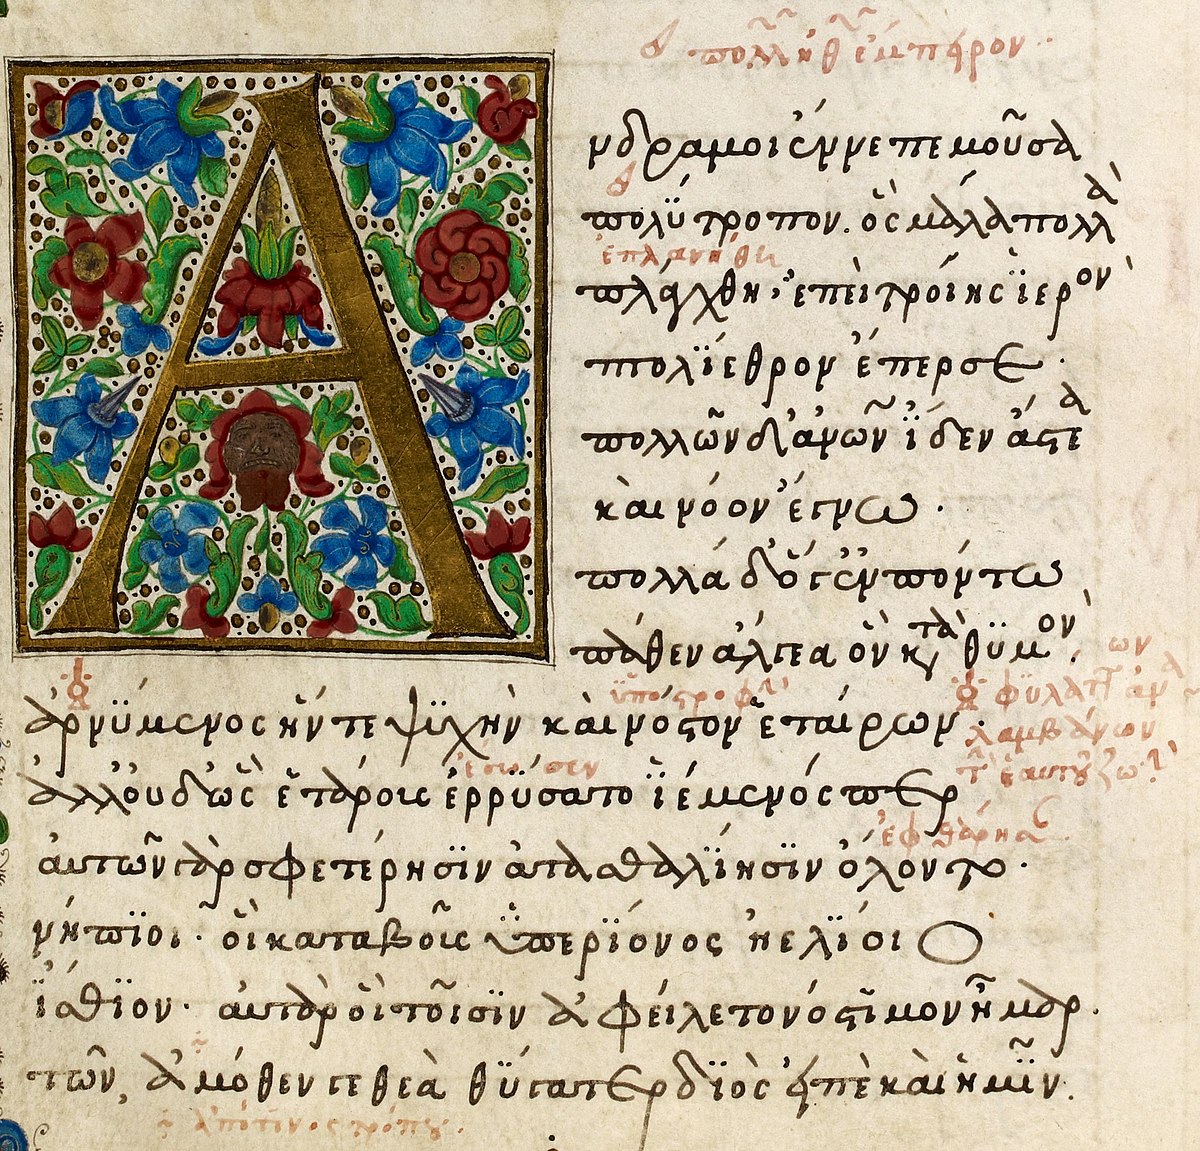 πολλὴν ἔμπειρον
Ἄνδρα μοι ἔννεπε μοῦσα
πολύτροπον. ὃς μάλα πολλὰ
ἐπλανήθη
πλάγχθη, ἐπεὶ τροίης ἱερὸν
πτολίεθρον ἔπερσε.
πολλῶν δ' ἀνθρώπων ἴδεν ἄστεα
καὶ νόον ἔγνω.
πολλὰ δ' ὅγ' ἐν πόντω
πάθεν ἄλγεα ὃν κατὰ θυμόν.
ὑποστροφὴν
ἀρνύμενος ἥν τε ψυχὴν καὶ νόστον ἑταίρων.
λαμβάνων
ἔσωσεν
ἀλλ' οὐδ' ὣς ἑτάροις ἐρρύσατο ἱέμενός περ
ἐφθάρησαν
αὐτῶν γὰρ σφετέρησιν ἀτασθαλίησιν ὄλοντο.
νήπιοι. οἳ κατὰ βοῦς ὑπερίονος ἠελίοιο
ἤσθιον. αὐτὰρ ὃ τοῖσιν ἀφείλετο νόστιμον ἦμαρ.
τῶν, ἀμόθεν γε θεὰ θύγατερ διὸς εἰπὲ καὶ ἡμῖν.
ἀπό τινος τρόπου.